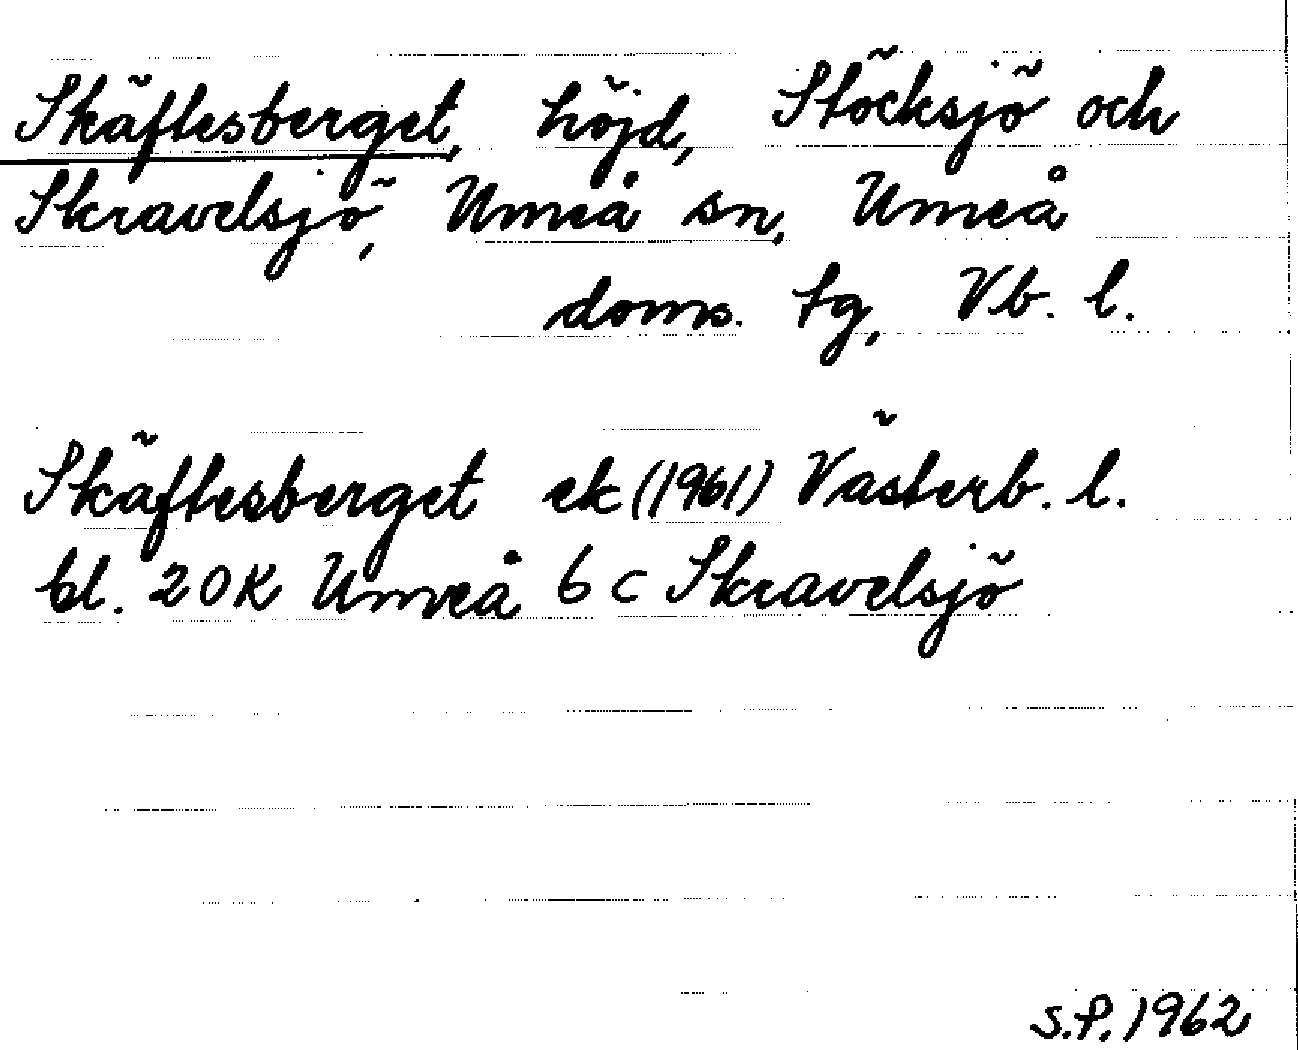 Skäftesberget, höjd, Stöcksjö och
Skravelsjö, Umeå sn, Umeå
doms. tg, Vb. l.
Skäftesberget ek (1961) Västerb. l.
bl. 20K Umeå 6 c Skravelsjö
S.P. 1962